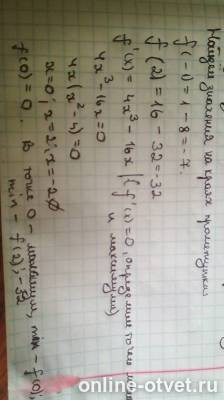 Найдем значения на краях промежутка:
f(-1) = 1 - 8 = -7.
f(2) = 16 - 32 = -32
f'(x) = 4x³ - 16x | (f'(x) = 0, определяем точки
и максимума)
4x³ - 16x = 0
4x(x² - 4) = 0
x = 0; x = 2; x = -2
f(0) = 0. В точке 0 - максимум,
min - f(2); -32
online-otvet.ru